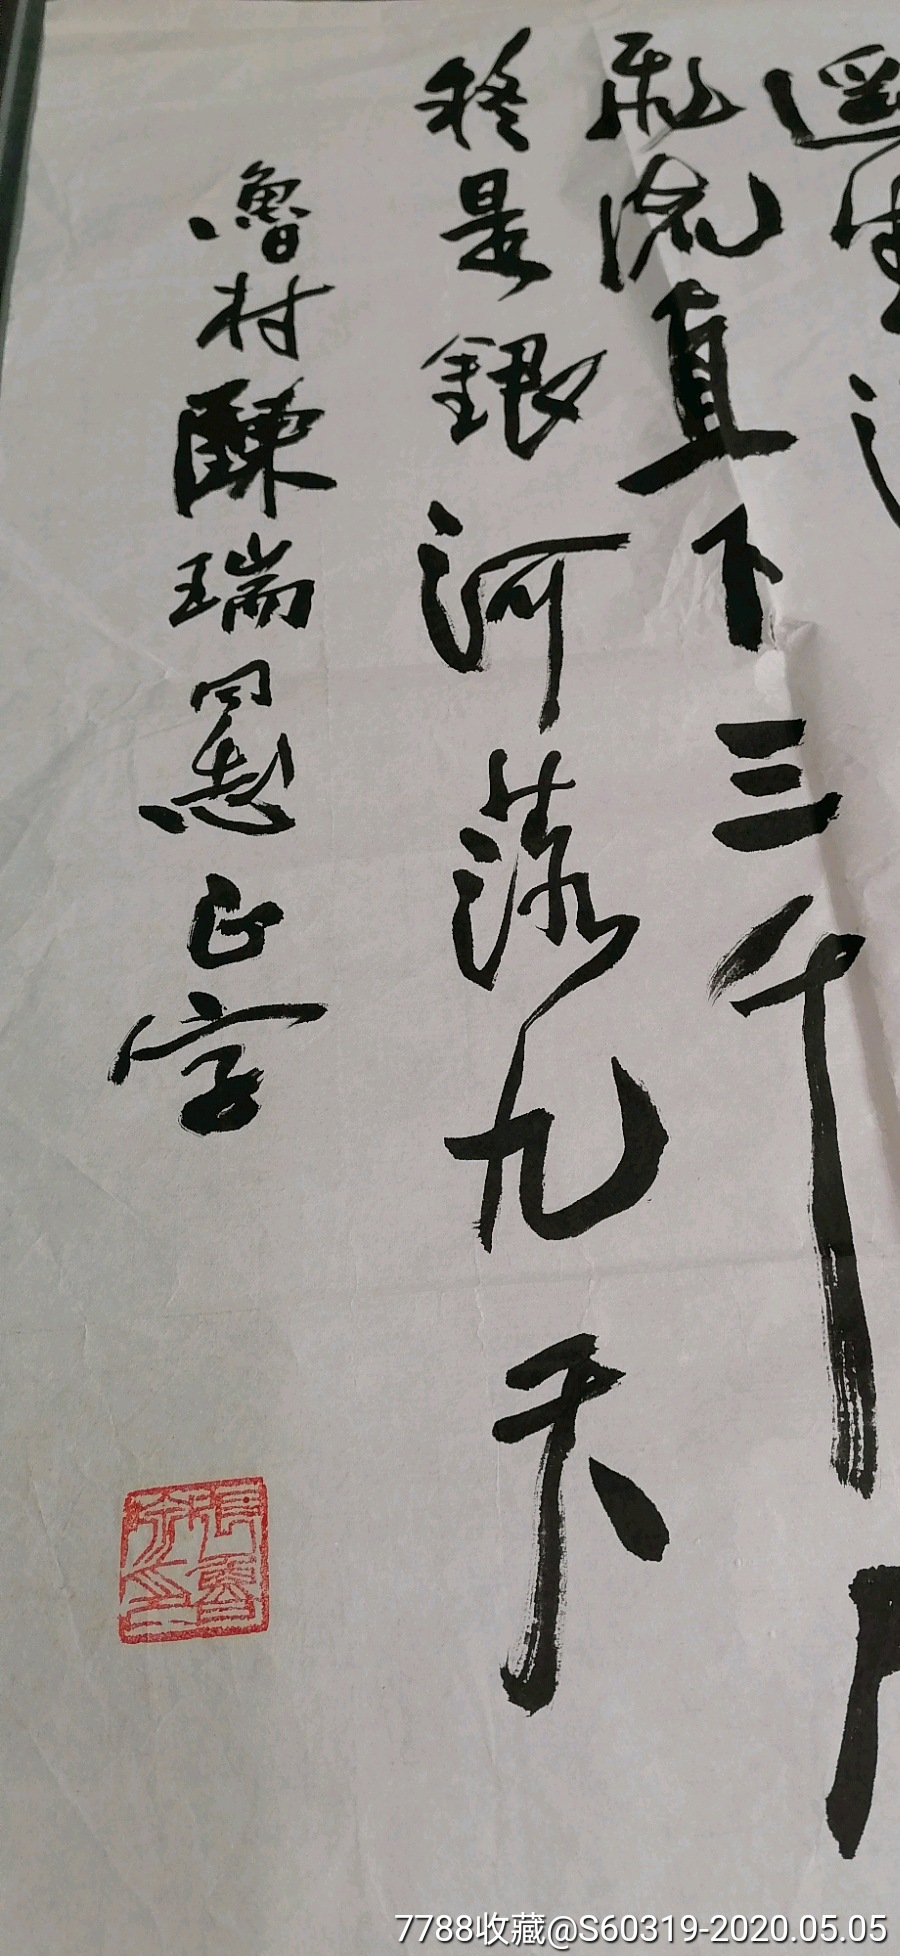 遥
飛流直下三千
疑是銀河落九天
魯村陳瑞同志正字
7788收藏@S60319-2020.05.05